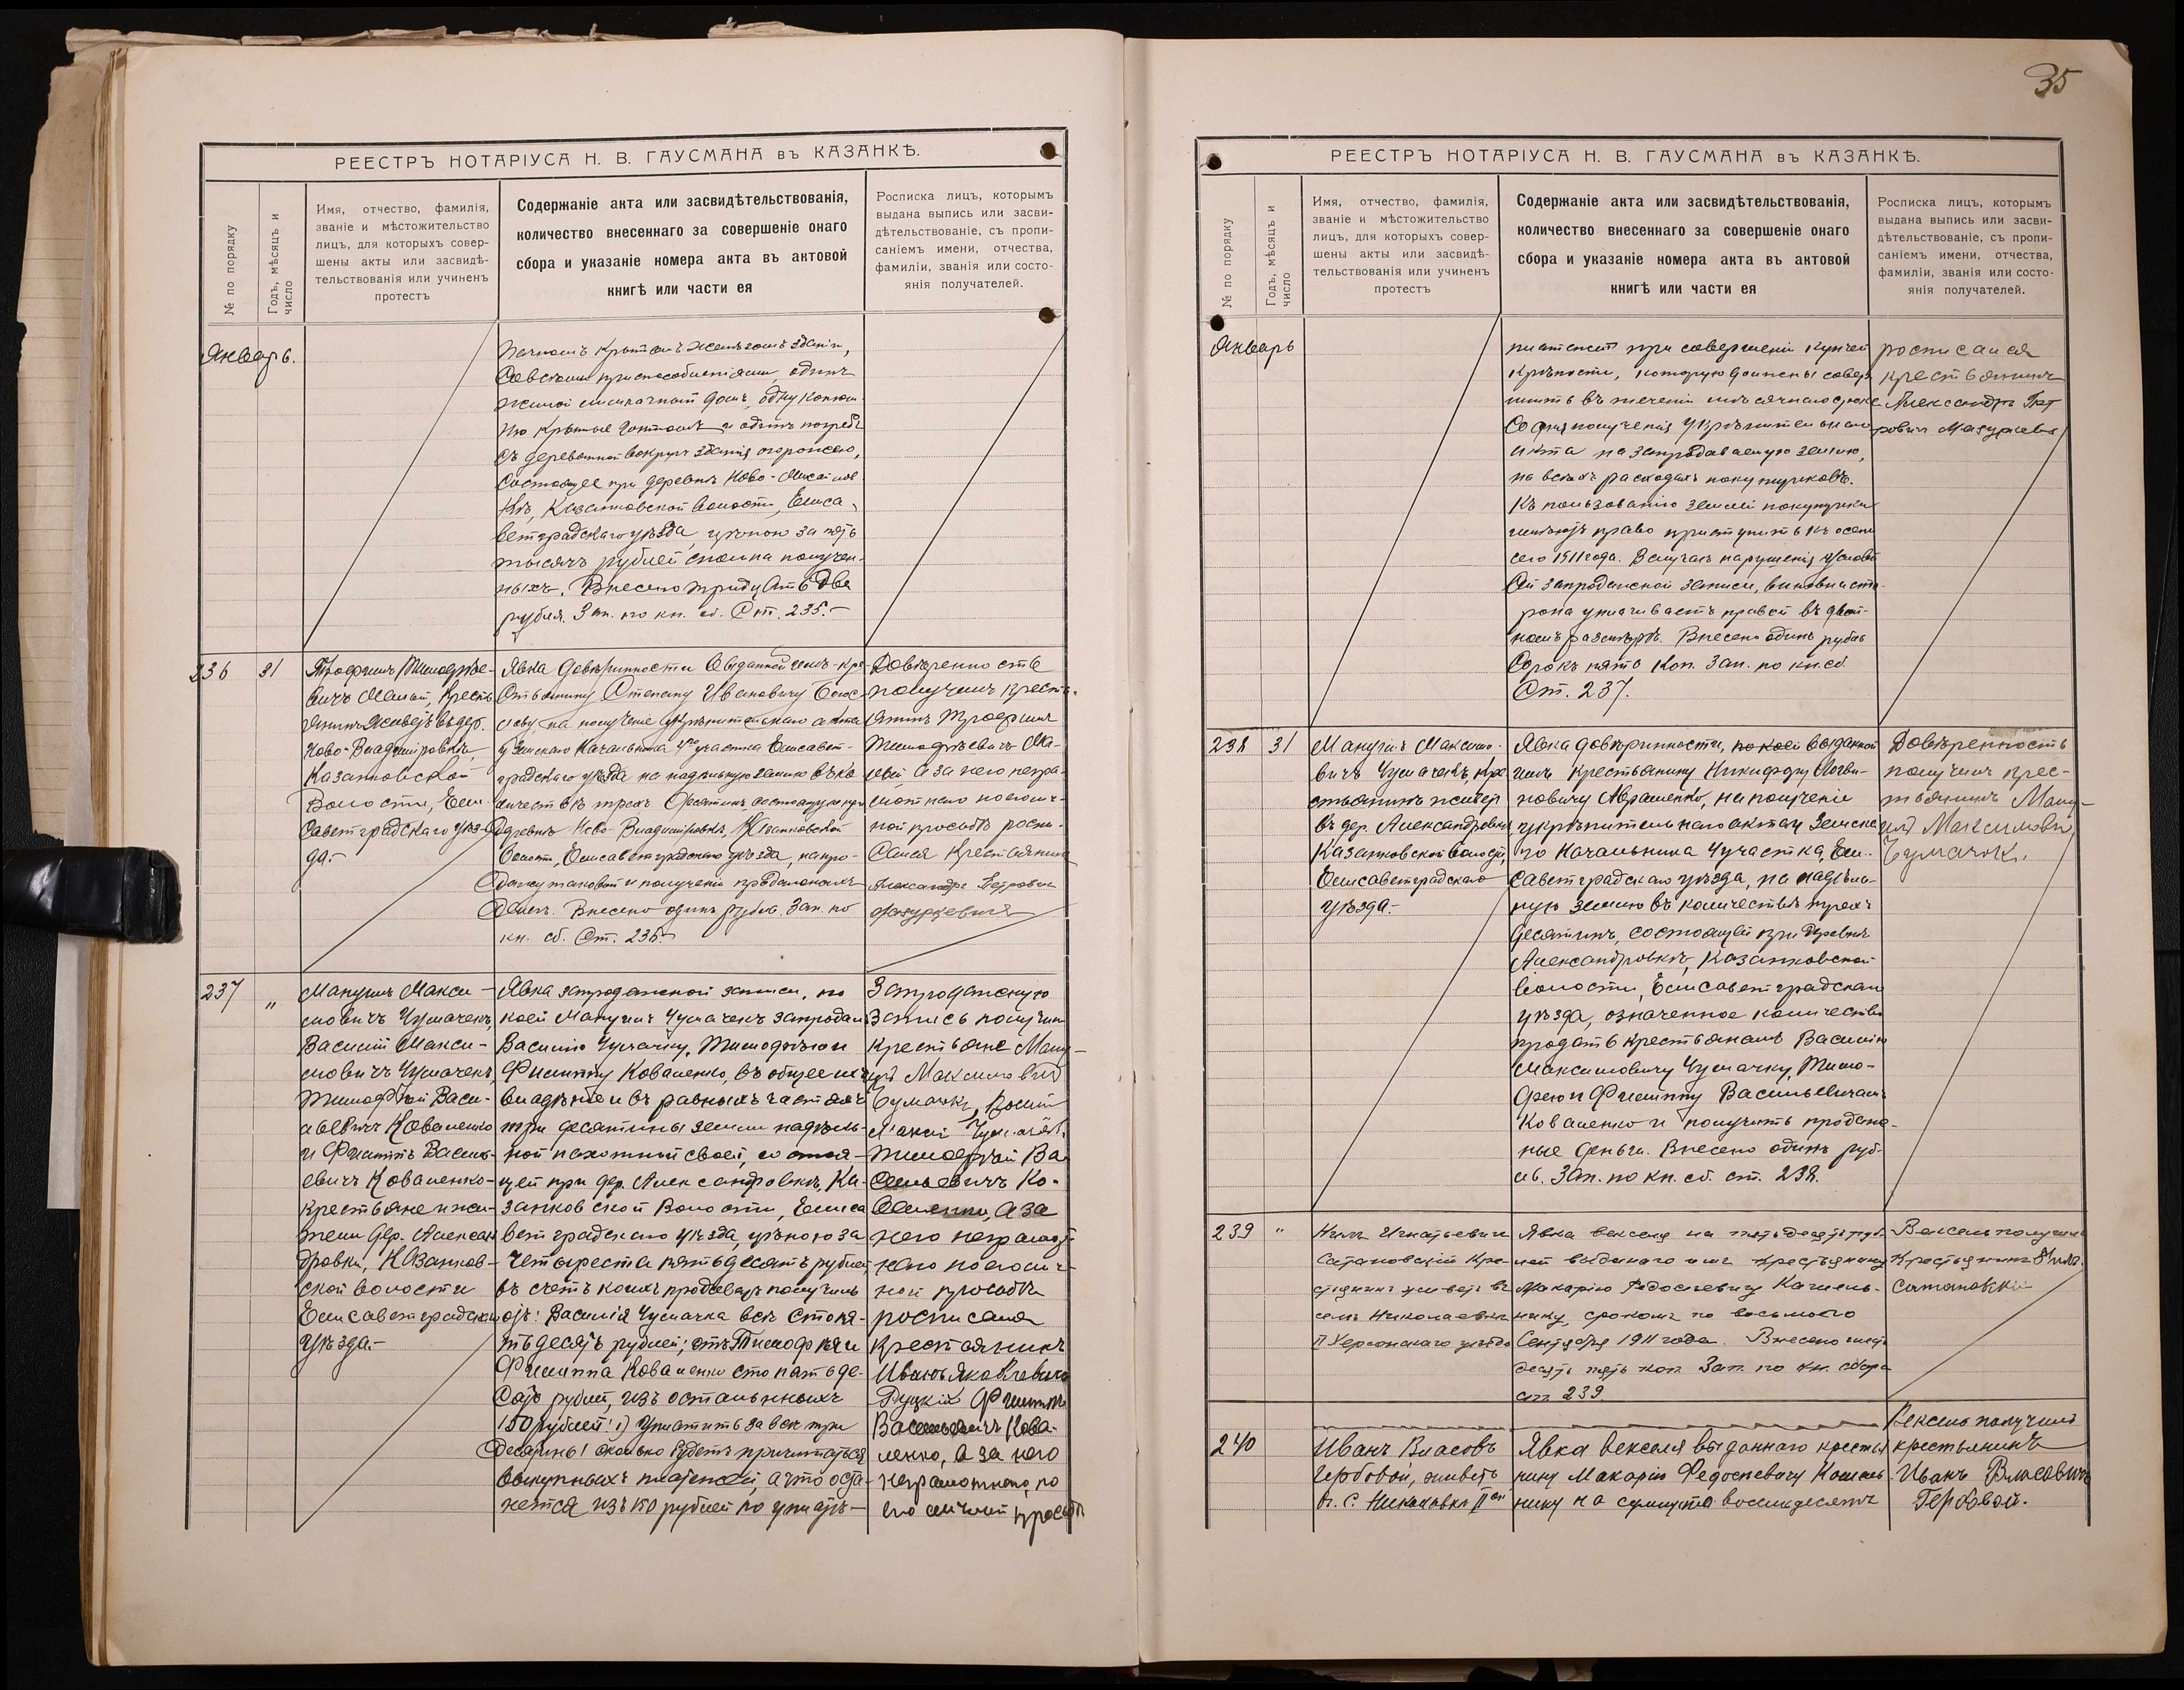 35
РЕЕСТРЪ НОТАРІУСА Н. В. ГАУСМАНА въ КАЗАНКѢ.
№ по порядку
Годъ, мѣсяцъ и
число
Имя, отчество, фамилія,
званіе и мѣстожительство
лицъ, для которыхъ совер-
шены акты или засвидѣ-
тельствованія или учиненъ
протестъ
Содержаніе акта или засвидѣтельствованія,
количество внесеннаго за совершеніе онаго
сбора и указаніе номера акта въ актовой
книгѣ или части ея
Росписка лицъ, которымъ
выдана выпись или засви-
дѣтельствованіе, съ пропи-
саніемъ имени, отчества,
фамиліи, званія или состо-
янія получателей.
Январь.
крытомъ зданіи,
Со всѣми приспособленіями, одинъ
жилой домъ, одну
и одинъ погребъ
съ деревянной вокругъ зданія огорожею,
Состоящее при деревнѣ Ново-
Казанковской волости, Елиса-
ветградскаго уѣзда, цѣною за пять
тысячъ рублей сполна получен-
ныхъ. Внесено тридцать два
рубля. Зап. по кн. сб. Ст. 235.-
236
31
Трофимъ Тимофѣе-
вичъ Малый, Кресть-
янинъ живетъ въ дер.
Ново-Владимировкѣ,
Казанковской
Волости, Ели-
саветградскаго уѣз-
да.-
Явка довѣренности выданной имъ кре-
стьянину Степану Ивановичу
на полученіе укрѣпительнаго акта
у Земскаго Начальника участка Елисавет-
градскаго уѣзда на надѣльную землю въ ко-
личествѣ трехъ десятинъ состоящую при
деревнѣ Ново-Владимировкѣ, Казанковской
Волости, Елисаветградскаго уѣзда, на про-
дажу таковой и полученіи проданныхъ
денегъ. Внесено одинъ рубль. Зап. по
кн. сб. Ст. 236.-
Довѣренность
получилъ кресть-
янинъ Трофимъ
Тимофѣевичъ Ма-
лый а за него негра-
мотнаго по его лич-
ной просьбѣ роспи-
сался Крестьянинъ
Александръ Петровичъ
Мазуркевичъ
237
"
Мануилъ Макси-
мовичъ Чумаченъ,
Василій Макси-
мовичъ Чумаченъ,
Тимофѣй Васи-
льевичъ Коваленко
и Филиппъ Василь-
евичъ Коваленко-
крестьяне и жи-
тели дер. Алексан-
дровки, Казанков-
ской волости
Елисаветградскаго
уѣзда.-
Явка запроданной записи, по
коей Мануилъ Чумаченъ запродалъ
Василію Чумачку, Тимофѣю и
Филиппу Коваленко, въ общее ихъ
владѣніе и въ равныхъ частяхъ
три десятины земли надѣль-
ной пахотной своей, состоя-
щей при дер. Александровкѣ, Ка-
занковской Волости, Елиса-
ветградскаго уѣзда, цѣною за
Четыреста пятьдесятъ рублей
въ счетъ коихъ продавецъ получилъ
отъ: Василія Чумачка все сто пя-
тьдесятъ рублей; отъ Тимофѣя и
Филиппа Коваленко сто пятьде-
сятъ рублей, изъ остальныхъ
150 рублей: 1) Уплатить за все три
десятины сколько будетъ причитаться
выкупныхъ платежей, а что оста-
нется изъ 150 рублей по уплатѣ-
Запроданную
Запись получили
крестьяне Ману-
илъ Максимовичъ
Чумачокъ,
Тимофѣй Ва-
сильевичъ Ко-
валенко, а за
него неграмот-
наго по его лич-
ной просьбѣ
росписался
Крестьянинъ
Иванъ Яковлевичъ
Филиппъ
Васильевичъ Кова-
ленко, а за него
неграмотнаго, по
его личной просьбѣ
РЕЕСТРЪ НОТАРІУСА Н. В. ГАУСМАНА въ КАЗАНКѢ.
№ по порядку
Годъ, мѣсяцъ и
число
Имя, отчество, фамилія,
званіе и мѣстожительство
лицъ, для которыхъ совер-
шены акты или засвидѣ-
тельствованія или учиненъ
протестъ
Содержаніе акта или засвидѣтельствованія,
количество внесеннаго за совершеніе онаго
сбора и указаніе номера акта въ актовой
книгѣ или части ея
Росписка лицъ, которымъ
выдана выпись или засви-
дѣтельствованіе, съ пропи-
саніемъ имени, отчества,
фамиліи, званія или состо-
янія получателей.
Январь
при совершеніи купчей
крѣпости, которую должны совер-
шить въ теченіи мѣсячнаго срока
Со дня полученія укрѣпительнаго
акта на запродаваемую землю,
на всѣхъ расходахъ покупщиковъ.
Къ пользованію землей покупщики
имѣютъ право приступить къ осени
сего 1911 года. Въ случаѣ нарушенія условій
сей запроданной записи, виновная сто-
рона уплачиваетъ правой въ двой-
номъ размѣрѣ. Внесено одинъ рубль
Сорокъ пять коп. Зап. по кн. сб.
Ст. 237.
росписался
крестьянинъ
Александръ Пет-
ровичъ Мазуркевичъ
238
31
Мануилъ Максимо-
вичъ Чумаченъ, Кре-
стьянинъ живетъ
въ дер. Александровкѣ
Казанковской волости,
Елисаветградскаго
уѣзда.-
Явка довѣренности, по коей выданной
имъ Крестьянину Никифору Логви-
новичу Авраменко, на полученіе
укрѣпительнаго акта у Земска-
го Начальника 4 участка, Ели-
саветградскаго уѣзда, на надѣль-
ную землю въ количествѣ трехъ
десятинъ, состоящей при деревнѣ
Александровкѣ, Казанковской
волости, Елисаветградскаго
уѣзда, означенное количество
продать крестьянамъ Василію
Максимовичу Чумачку, Тимо-
фею и Филиппу Васильевичамъ
Коваленко и получить продан-
ные деньги. Внесено одинъ руб-
ль. Зап. по кн. сб. ст. 238.
Довѣренность
получилъ крес-
тьянинъ Ману-
илъ Максимовъ
Чумачокъ.
239
"
Нилъ Игнатьевичъ
Сатановскій Кре-
стьянинъ живетъ въ
селѣ Николаевкѣ
II Херсонскаго уѣзда
Явка векселя на пятьдесятъ руб-
лей выданаго имъ крестьянину
Макарію Федосьевичу Кашель-
нику, срокомъ по восьмого
Сентября 1911 года. Внесено шесть
десятъ пять коп. Зап. по кн. сбора
ст. 239.
Вексель получилъ
Крестьянинъ Нилъ
Сатановскій
240
Иванъ Власовъ
Гербовой, живетъ
в. с. Николаевкѣ IIой
Явка векселя выданнаго крестья
нину Макарію Федосіевичу Кашель
нику на сумму сто восемьдесятъ
Вексель получилъ
крестьянинъ
Иванъ Власовичъ
Гербовой.